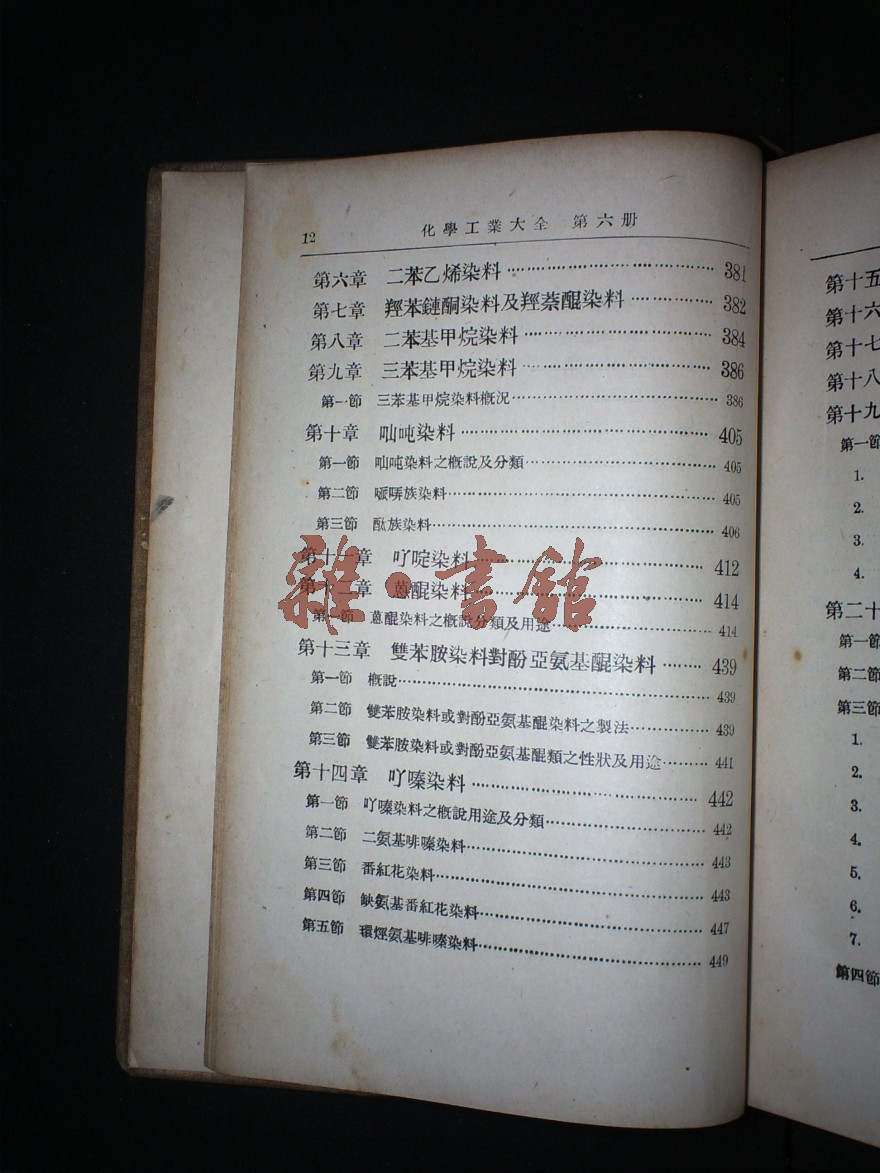 12
化學工業大全 第六册
第六章 二苯乙烯染料……381
第七章 羥苯鏈酮染料及羥萘醌染料……382
第八章 二苯基甲烷染料……384
第九章 三苯基甲烷染料……386
第一節 三苯基甲烷染料概況……386
第十章 𠮿吨染料……405
第一節 𠮿吨染料之概說及分類……405
第二節 族染料……405
第三節 酞族染料……406
第十一章 吖啶染料……412
第十二章 蒽醌染料……414
第一節 蒽醌染料之概說分類及用途……414
第十三章 雙苯胺染料對酚亞氨基醌染料……439
第一節 概說……439
第二節 雙苯胺染料或對酚亞氨基醌染料之製法……439
第三節 雙苯胺染料或對酚亞氨基醌類之性狀及用途……441
第十四章 吖嗪染料……442
第一節 吖嗪染料之概說用途及分類……442
第二節 二氨基啡嗪染料……443
第三節 番紅花染料……443
第四節 缺氨基番紅花染料……447
第五節 環烴氨基啡嗪染料……449
雜·書館
第十五
第十六
第十七
第十八
第十九
第一節
1.
2.
3.
4.
第二十
第一節
第二節
第三節
1.
2.
3.
4.
5.
6.
7.
第四節